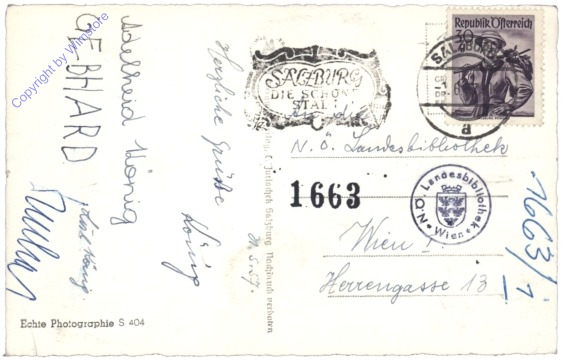 Copyright by Wimstore
Adelheid König
GEBHARD
König
Herzliche Grüße
König
31.5.57.
Salzburg Nachdruck verboten.
Echte Photographie S 404
SALZBURG
DIE SCHÖNE
STADT
Republik Österreich
30
SALZBURG
a
N. Ö. Landesbibliothek
1663
N.Ö. Landesbibliothek
Wien
Wien I.
Herrengasse 13
1663/1